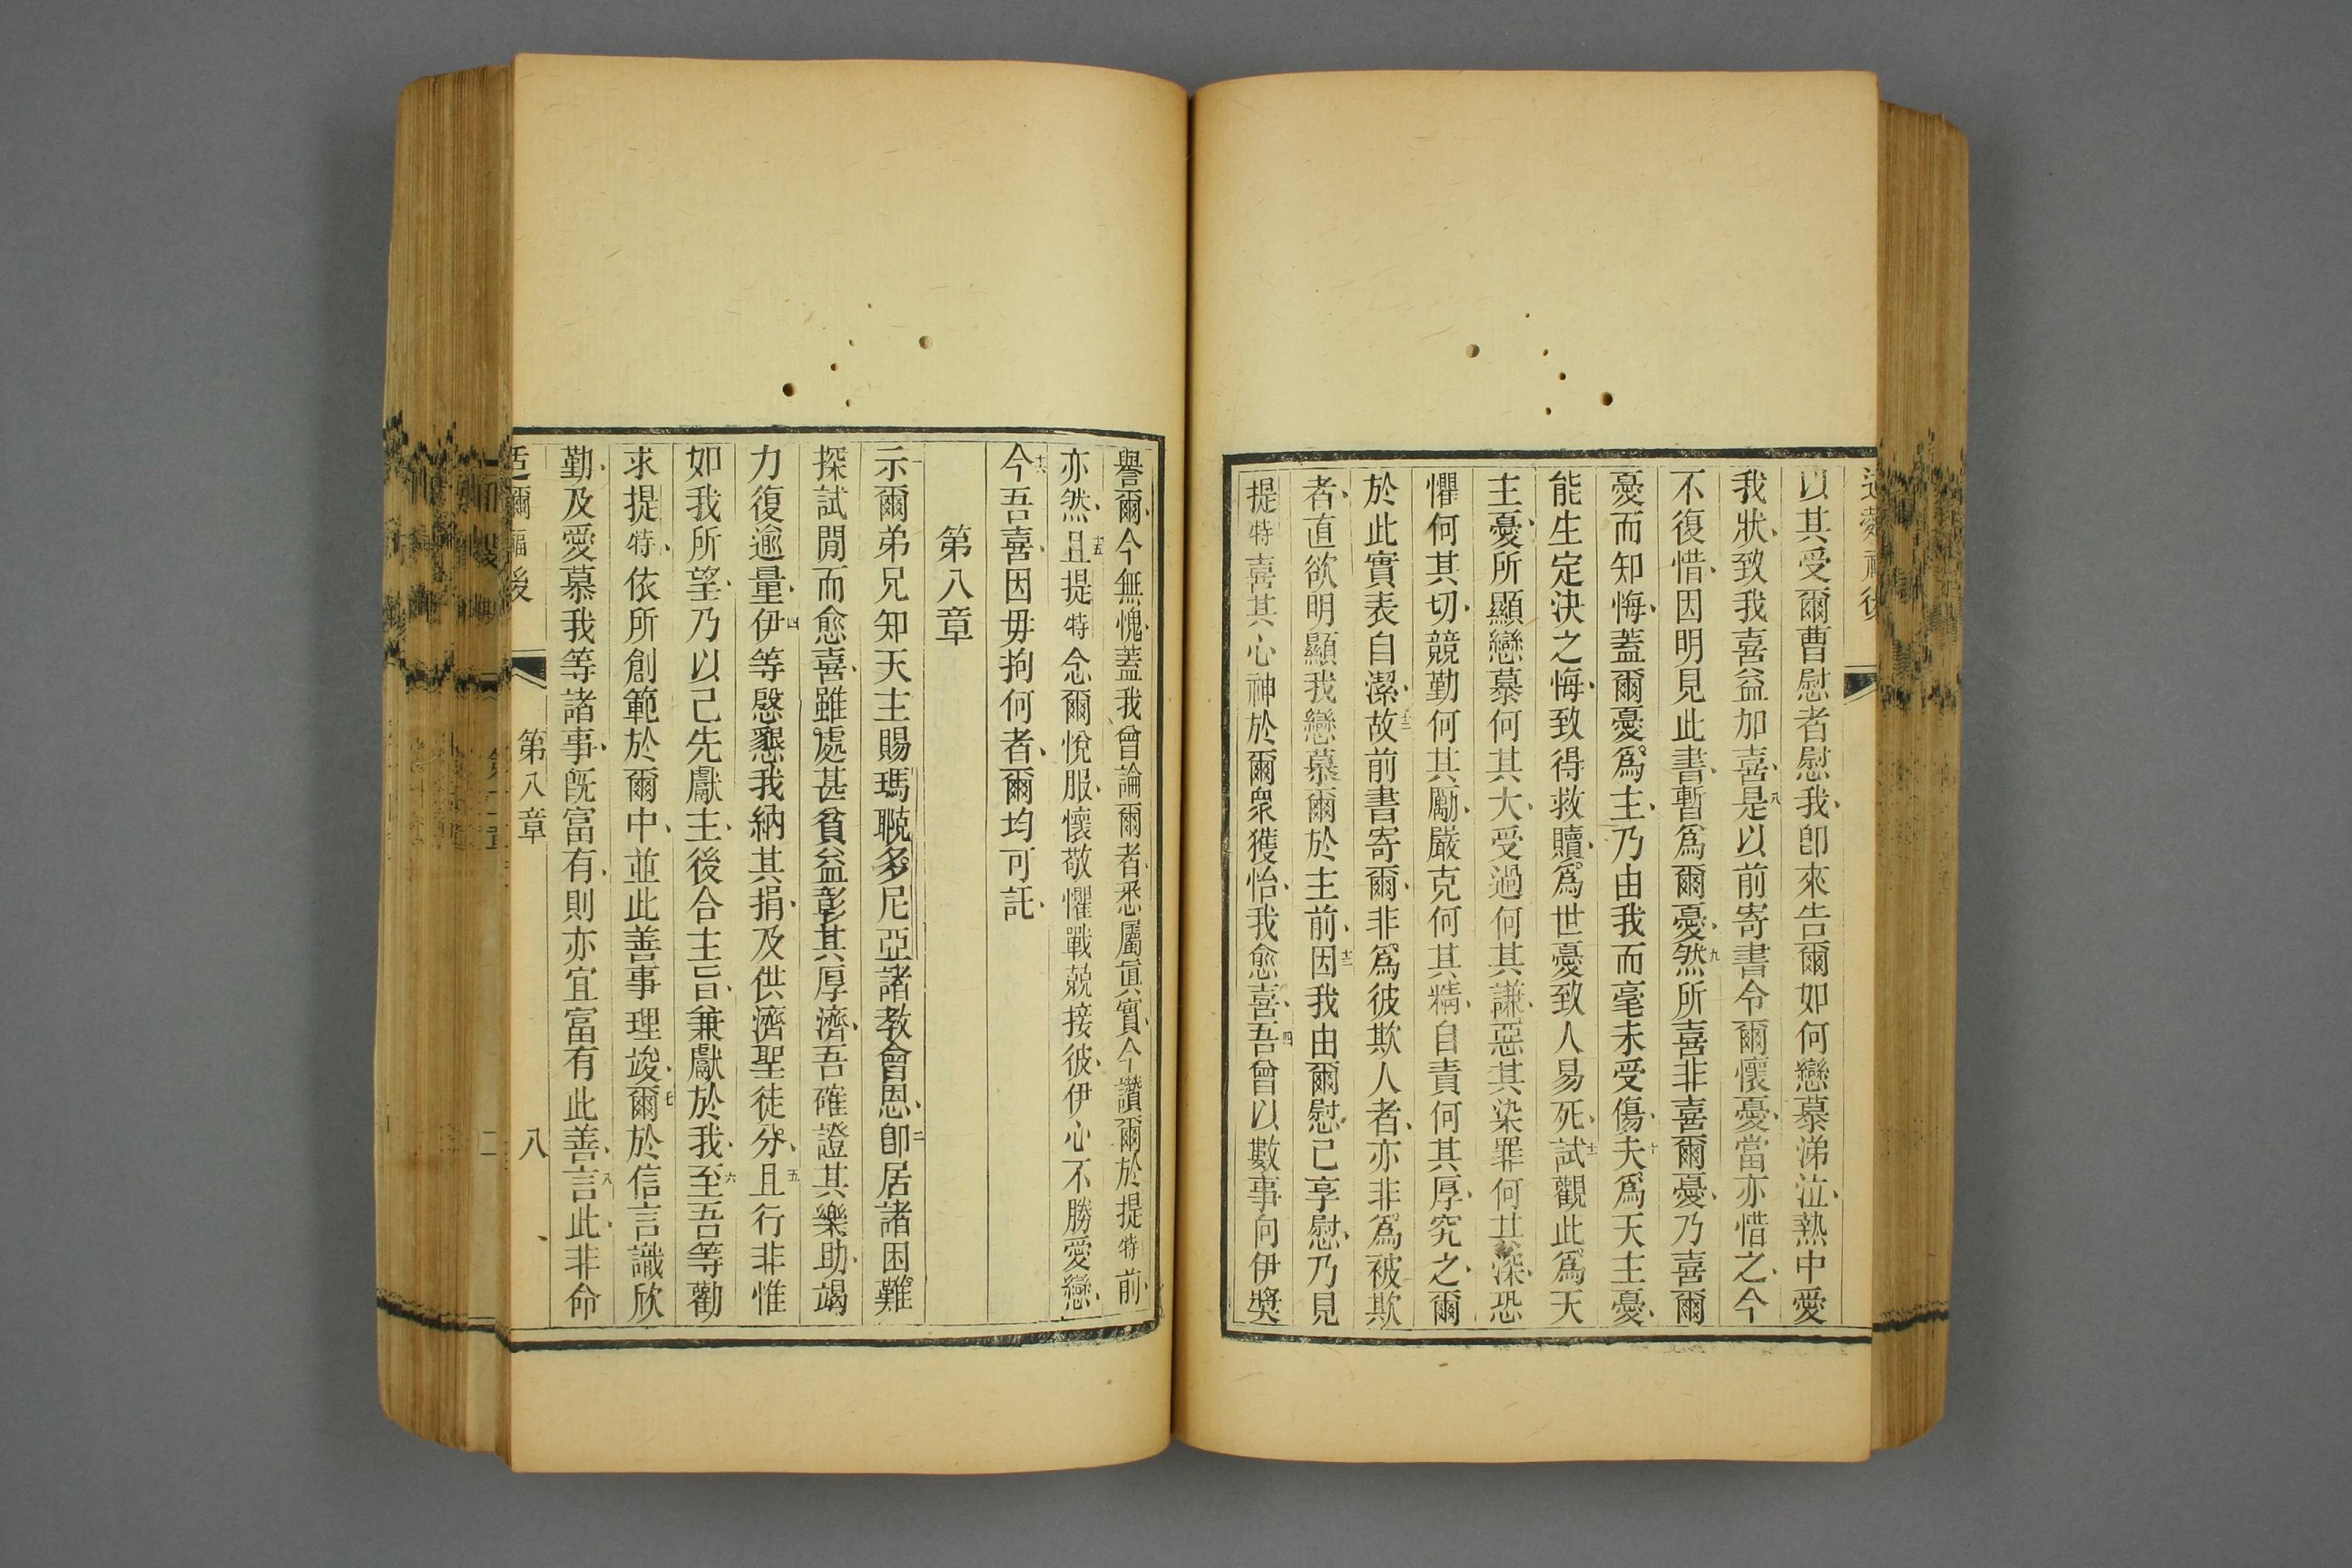 以其受爾曹慰者慰我卽來告爾如何戀慕涕泣熱中愛
我狀致我喜益加喜八是以前寄書令爾懷憂當亦惜之今
不復惜因明見此書暫爲爾憂九然所喜非喜爾憂乃喜爾
憂而知悔蓋爾憂爲主乃由我而毫未受傷十夫爲天主憂
能生定決之悔致得救贖爲世憂致人易死十一試觀此爲天
主憂所顯戀慕何其大受過何其謙惡其染罪何其深恐
懼何其切競勤何其勵嚴克何其精自責何其厚究之爾
於此實表自潔十二故前書寄爾非爲彼欺人者亦非爲被欺
者直欲明顯我戀慕爾於主前十三因我由爾慰己享慰乃見
提特喜其心神於爾衆獲怡我愈喜十四吾曾以數事向伊獎
譽爾今無愧蓋我曾論爾者悉屬眞實今讚爾於提特前
亦然十五且提特念爾悅服懷敬懼戰兢接彼伊心不勝愛戀
十六今吾喜因毋拘何者爾均可託
第八章
一示爾弟兄知天主賜瑪聭多尼亞諸教會恩二卽居諸困難
探試閒而愈喜雖處甚貧益彰其厚濟吾確證其樂助竭
力復逾量四伊等慇懇我納其捐及供濟聖徒分五且行非惟
如我所望乃以己先獻主後合主旨兼獻於我六至吾等勸
求提特依所創範於爾中並此善事理竣七爾於信言識欣
勤及愛慕我等諸事旣富有則亦宜富有此善八言此非命
爾 後 第八章 八